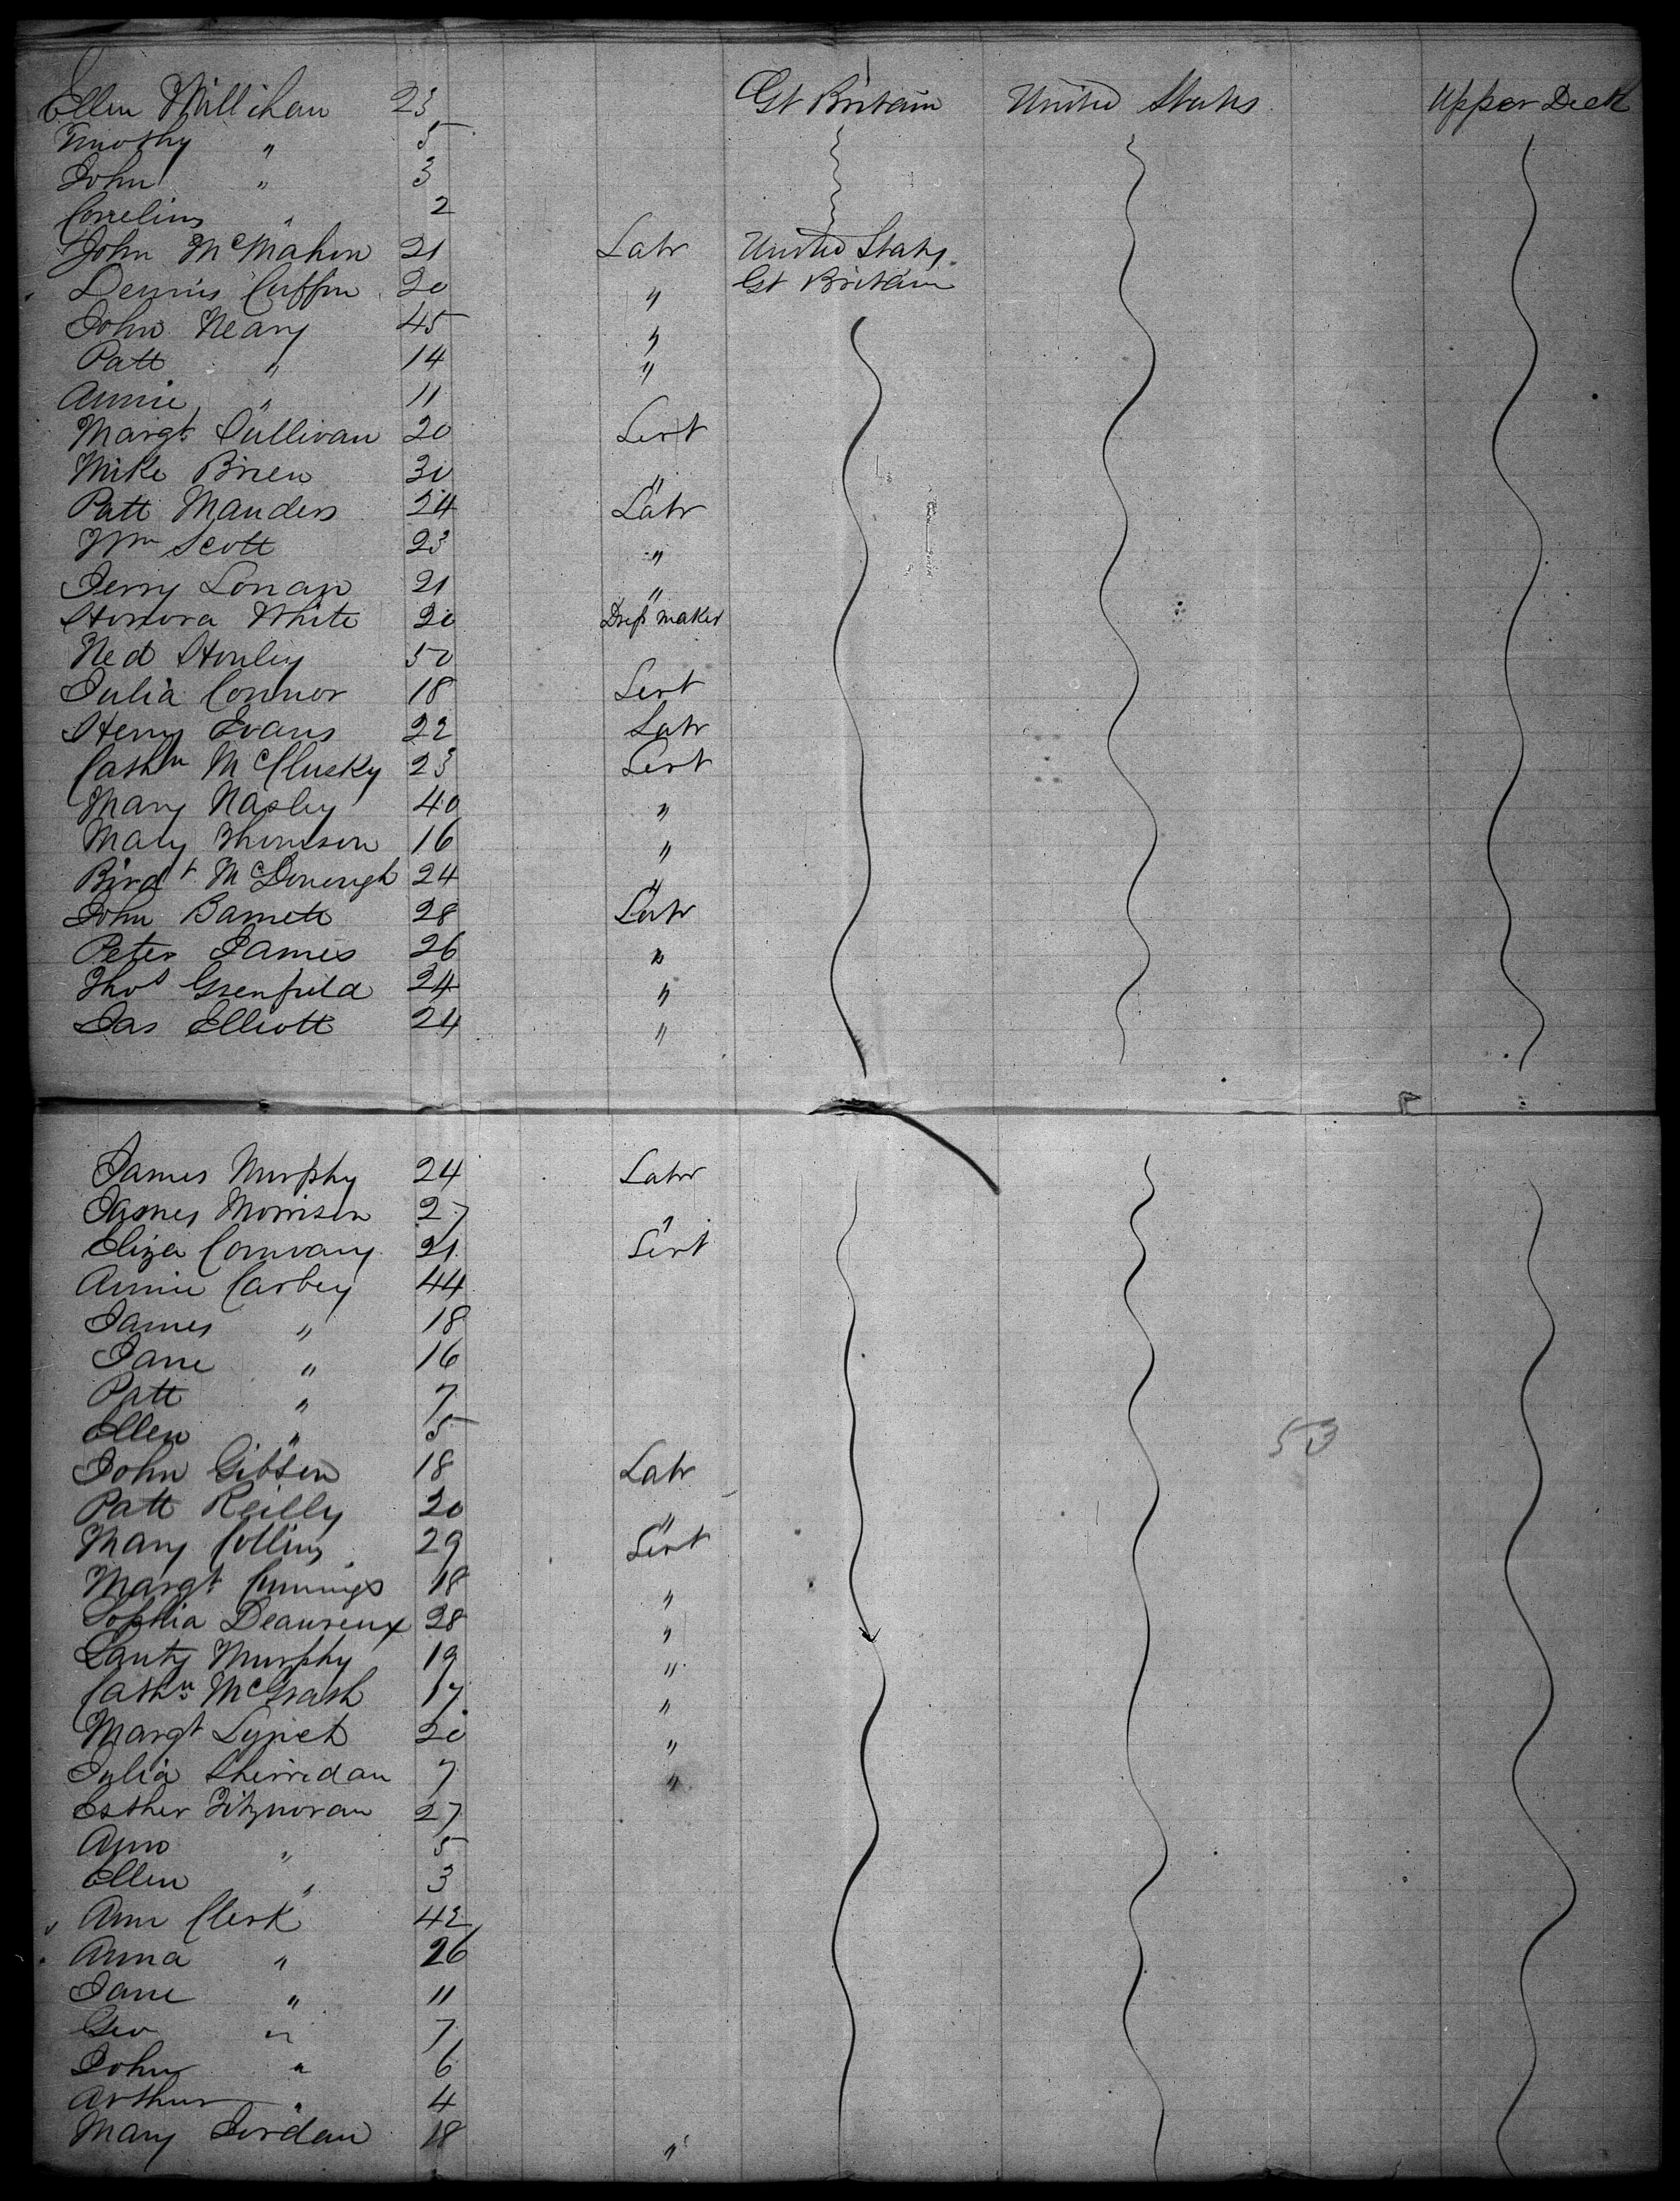 Ellen Millihan 23 Gt Britain United States Upper Deck
Timothy " 5
John " 3
Cornelius " 2
John McMahon 21 Labr United States
Dennis Cuffin 20 " Gt Britain
John Neary 45 "
Patt " 14 "
Annie " 11
Margt Sullivan 20 Servt
Mike Brien 30 "
Patt Manders 24 Labr
Wm Scott 23 "
Jerry Lonan 21 "
Honora White 20 Dress maker
Ned Honley 50
Julia Connor 18 Servt
Henry Evans 22 Labr
Cathn McClusky 23 Servt
Mary Nasley 40 "
Mary Thomson 16 "
Birdt McDonough 24 "
John Barnett 28 Labr
Peter James 26 "
Thos Greenfield 24 "
Jas Elliott 24 "
James Murphy 24 Labr
James Morrison 27 "
Eliza Conway 21 Servt
Annie Carbey 44
James " 18
Jane " 16
Patt " 7
Ellen " 5
53
John Gibson 18 Labr
Patt Reilly 20 "
Mary Collins 29 Servt
Margt Cummings 18 "
Sophia Deaureux 28 "
Murphy 19 "
Cathn McGrath 17 "
Margt Lynch 20 "
Julia Sherridan 7 "
Esther Fitzmoran 27
Ann " 5
Ellen " 3
Ann Clerk 42
Anna " 26
Jane " 11
Geo " 7
John " 6
Arthur " 4
Mary Jordan 18 "